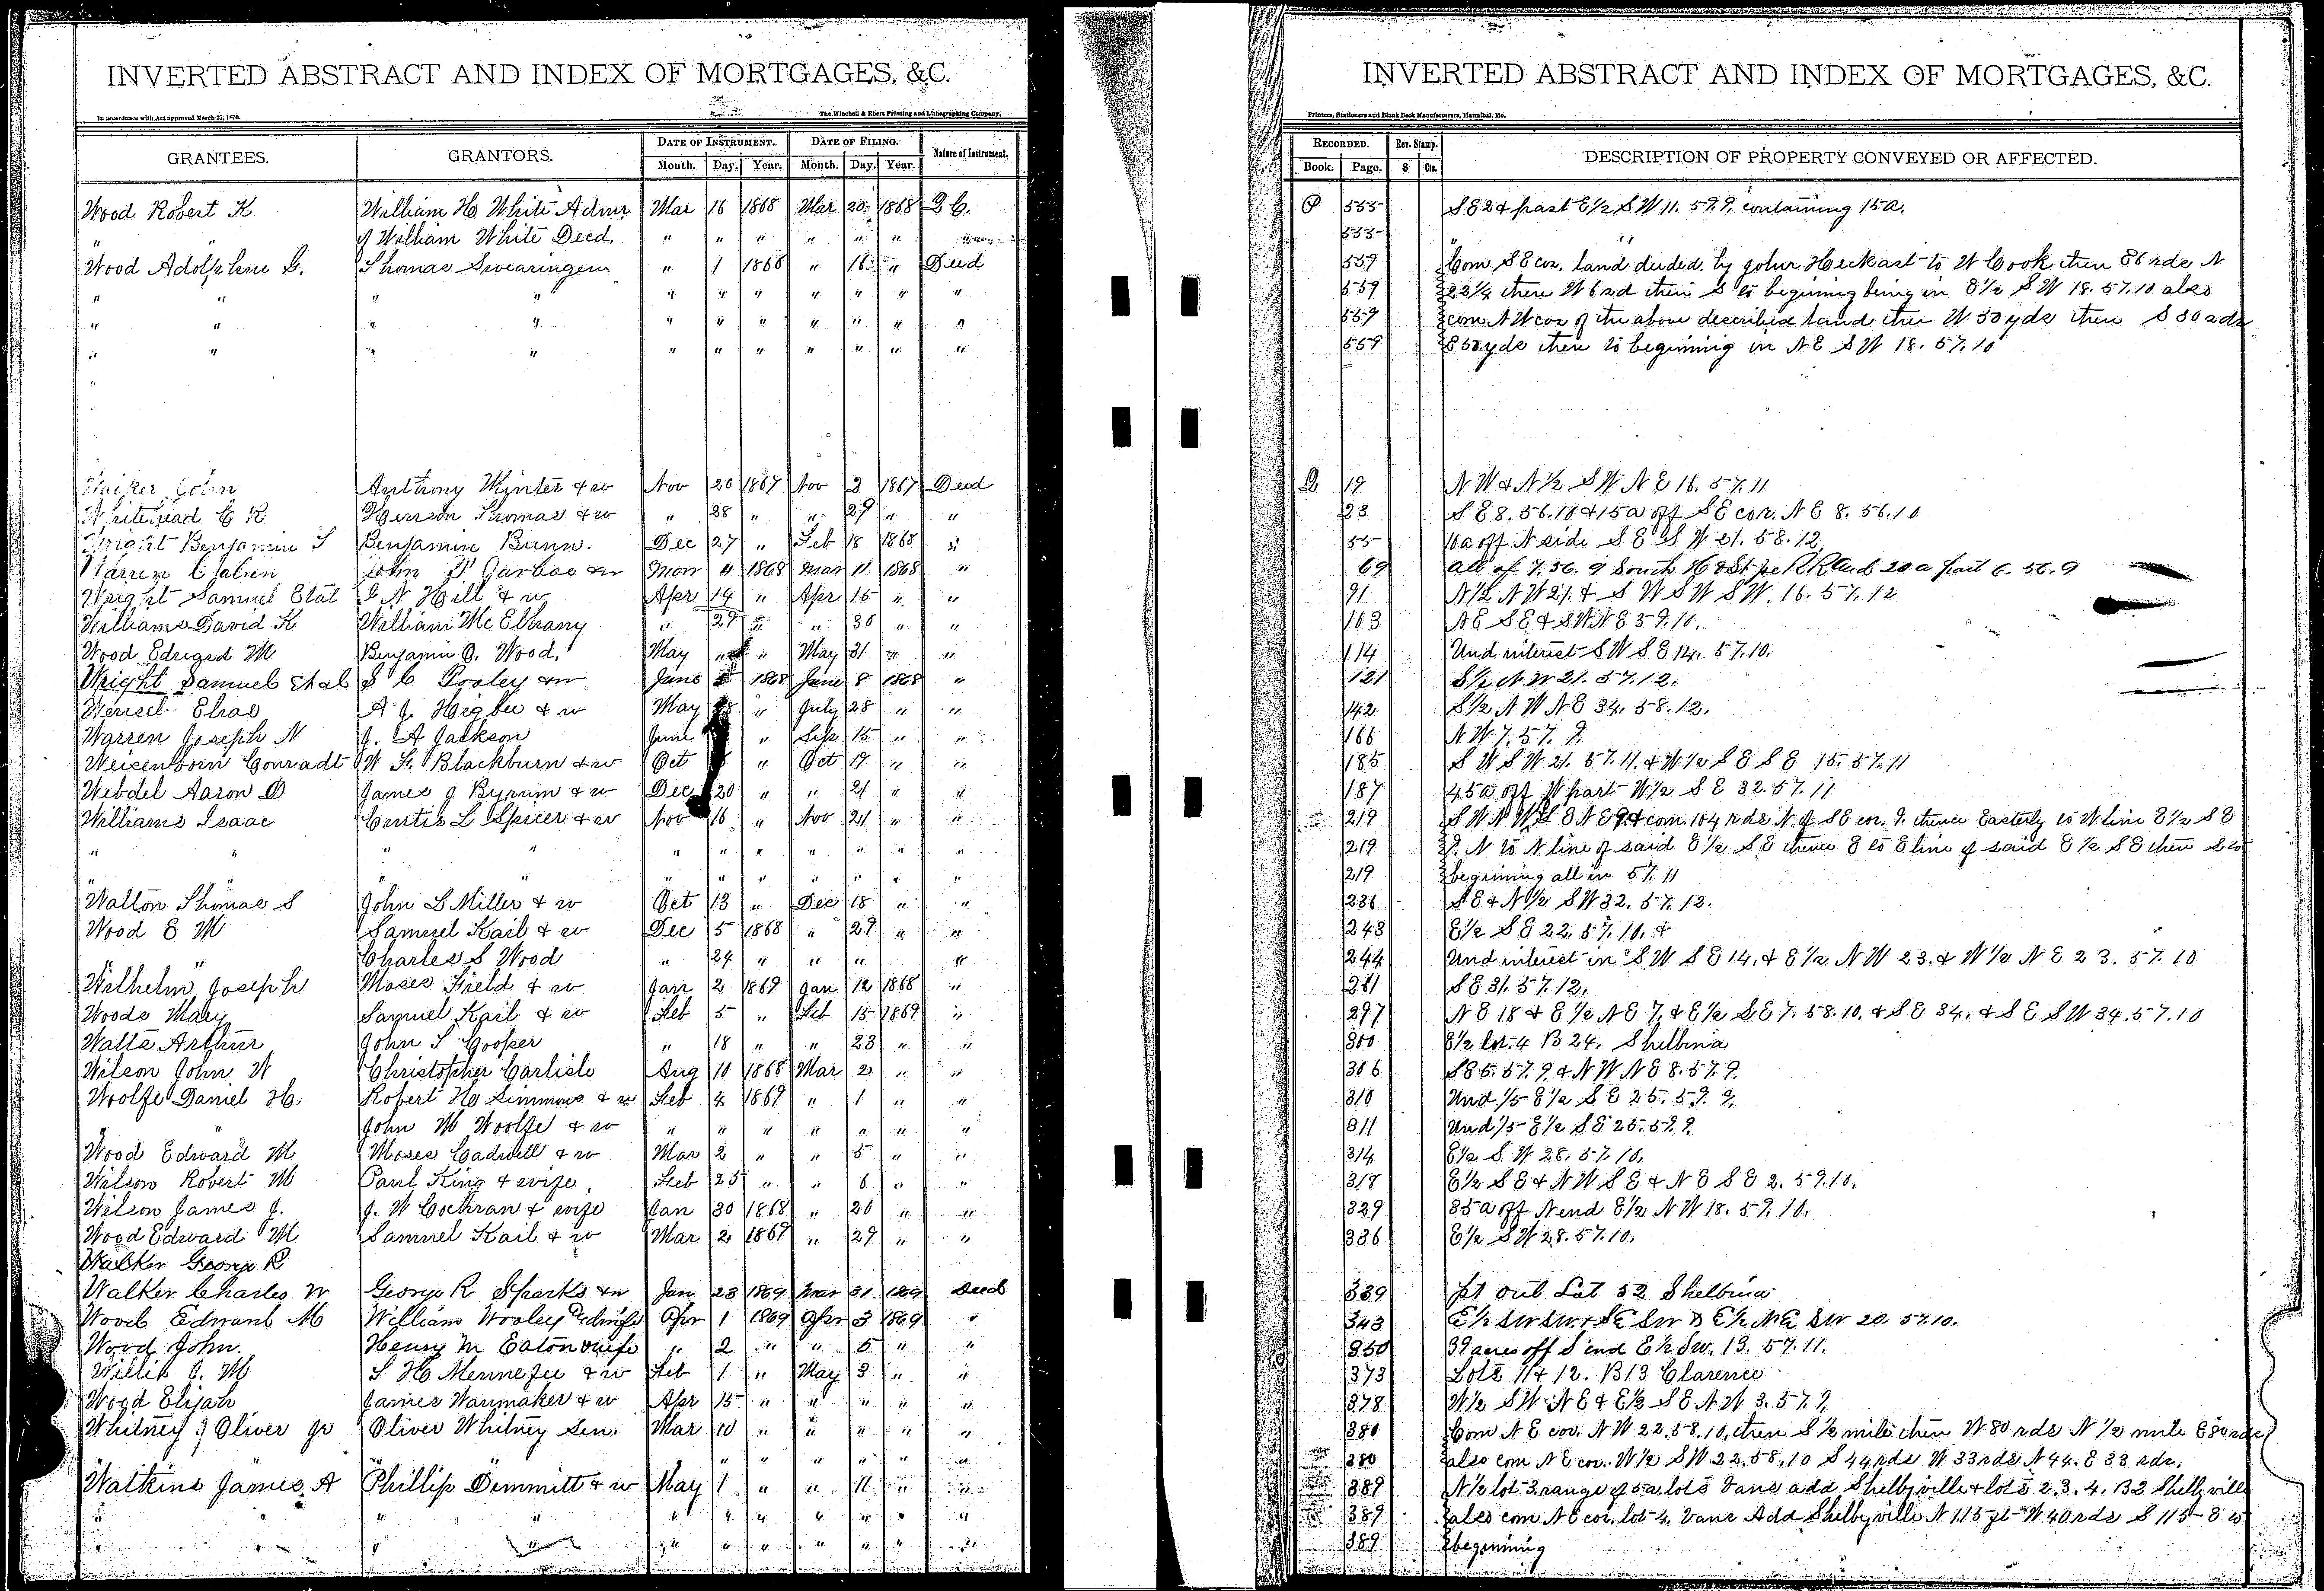 INVERTED ABSTRACT AND INDEX OF MORTGAGES, &C.
In accordance with Act approved March 25, 1870. The Winchell & Ebert Printing and Lithographing Company,
GRANTEES. GRANTORS. DATE OF INSTRUMENT. DATE OF FILING. Nature of Instrument.
Month. Day. Year. Month. Day. Year.
Wood Robert K. William H White Admr Mar 16 1868 Mar 20 1868
of William White Decd. " " " " " "
Wood Adolphus G. Thomas Swearingen " 1 1868 " 18 " Deed
" " " " " " " " " " "
" " " " " " " " " " "
" " " " " " " " " " "
John Anthony Minter & w Nov 20 1867 Nov 2 1867 Deed
Whitehead C R Thomas & w " 28 " " 29 " "
Wright Benjamin T Benjamin Bunn. Dec 27 " Feb 18 1868 "
Warren John & w 4 1868 Mar 11 1868 "
Wright Samuel Etal N Hill & w Apr 14 " Apr 15 " "
Williams David K William McElhany " 29 " " 30 " "
Wood Edward M Benjamin O. Wood, May " " May 31 " "
Wright Samuel Etal S C Pooley & w June 1868 June 8 1868 "
Elras A J. Higbee & w May " July 28 " "
Warren Joseph N J. A Jackson June " Sep 15 " "
Weisenborn Conradt W F. Blackburn & w Oct " Oct 19 " "
Webdel Aaron D James J Byrum & w Dec 20 " " 21 " "
Williams Isaac Curtis L Spicer & w Nov 16 " Nov 24 " "
" " " " " " " " " " "
" " " " " " " " " " "
Walton Thomas S John L Miller & w Oct 13 " Dec 18 " "
Wood E M Samuel Kail & w Dec 5 1868 " 29 " "
" " Charles S Wood " 24 " " " " "
Wilhelm Joseph Moses Field & w Jan 2 1869 Jan 12 1868 "
Woods Mary Samuel Kail & w Feb 5 " Feb 15 1869 "
Watts Arthur John S Cooper " 18 " " 23 " "
Wilson John W Christopher Carlisle Aug 10 1868 Mar 2 " "
Woolfe Daniel H. Robert H Simmons & w Feb 4 1869 " 1 " "
" John M Woolfe & w " " " " " " "
Wood Edward M Moses Cadwell & w Mar 2 " " 5 " "
Wilson Robert M Paul King & wife Feb 25 " " 6 " "
Wilson James J. J. W Cochran & wife Jan 30 1868 " 20 " "
Wood Edward M Samuel Kail & w Mar 2 1869 " 29 " "
Walker George R
Walker Charles W George R Sparks & w Jan 23 1869 Mar 31 1869 Deed
Wood Edward M William Wooley & wife Apr 1 1869 Apr 3 1869 "
Wood John. Henry M Eaton & wife " 2 " " 5 " "
Willis C. M S H Menefee & w Feb 1 " May 3 " "
Wood Elijah James Wanmaker & w Apr 15 " " " " "
Whitney Oliver Jr Oliver Whitney Sen. Mar 10 " " " " "
" " " " " " " " "
Watkins James A Phillip Dimmitt & w May 1 " " 11 " "
" " " " " " " " "
" " " " " " " " "
INVERTED ABSTRACT AND INDEX OF MORTGAGES, &C.
Printers, Stationers and Blank Book Manufacturers, Hannibal, Mo.
RECORDED. Rev. Stamp. DESCRIPTION OF PROPERTY CONVEYED OR AFFECTED.
Book. Page. $ Cts.
P 555 S E 2 & part E½ S W 11. 59.9, containing 15a.
555 "
559 Com S E cor. land deeded by John Heckart to W Cook then E 6 rds N
559 22¼ then W 6 rd then S to beginning being in E½ S W 18. 57.10 also
559 com N W cor of the above described land then W 30 yds then S 30 rds
559 E yds then to beginning in N E S W 18. 57.10
Q 19 N W & N½ S W N E 16. 57.11
23 S E 8. 56.10 & 15a off S E cor. N E 8. 56.10
55 10a off N side S E S W 21. 58.12
69 all of 7. 56. 9 South H & St Joe R R and 20 a part 6. 56.9
91 N½ N W 21. & S W S W S W. 16. 57.12
103 N E S E & S W N E 3 59.10.
114 Und interest S W S E 14. 57.10.
121 S½ N W 21. 57.12.
142 S½ N W N E 34. 58.12.
166 N W 7. 57. 9.
185 S W S W 21. 57.11. & W½ S E S E 15. 57.11
187 45a off W part W½ S E 32. 57.11
219 S W N W & com. 104 rds N of S E cor. 9. thence Easterly to W line E½ S E
219 9. N to N line of said E½ S E thence E to E line of said E½ S E then S to
219 beginning all in 57.11
236 S E & N½ S W 32. 57.12.
243 E½ S E 22. 57.10. &
244 Und interest in S W S E 14. & E½ N W 23. & W½ N E 23. 57.10
281 S E 31. 57.12.
297 N E 18 & E½ N E 7. & E½ S E 7. 58.10. & S E 34. & S E S W 34. 57.10
300 E½ lot 4 B 24. Shelbina
306 S E 5. 57.9. & N W N E 8. 57.9.
310 Und 1/5 E½ S E 25. 59. 9.
311 Und 1/5 E½ S E 25. 59.9.
314 E½ S W 28. 57.10.
318 E½ S E & N W S E & N E S E 2. 59.10.
329 35a off N end E½ N W 18. 59.10.
336 E½ S W 28. 57.10.
339 pt out Lot 32 Shelbina
343 E½ SW SW & SE SW & E½ NE SW 20. 57.10.
350 39 acres off S end E½ SW. 13. 57.11.
373 Lots 11 & 12. B13 Clarence
378 W½ S W N E & E½ S E N W 3. 57.9,
380 Com N E cor. N W 22. 58.10. then S ½ mile then W 80 rds N ½ mile E 80 rds
380 also com N E cor. W½ S W 22. 58.10 S 44 rds W 33 rds N 44. E 33 rds,
389 N½ lot 3 range of 5a lots Vans add Shelbyville & lots 2. 3. 4. B2 Shelbyville
389 also com N E cor. lot 4. Vans Add Shelbyville N 115 ft W 40 rds S 115 E to
389 beginning